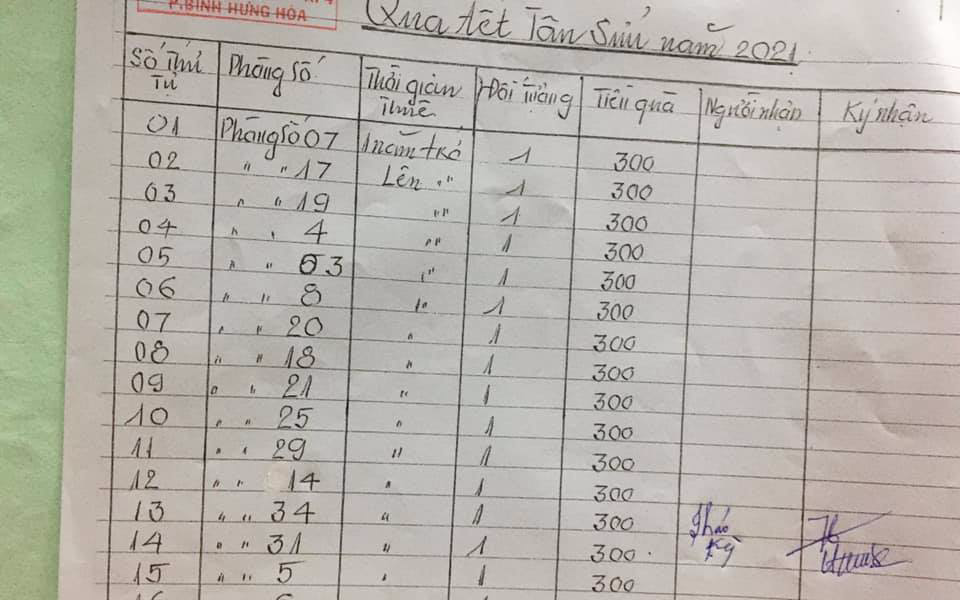 P.BÌNH HƯNG HÒA
Quà tết Tân Sửu năm 2021
Số Thứ Tự Phòng Số Thời gian Thuê Đối Tượng Tiền quà Người nhận Ký nhận
01 Phòng số 07 1 năm trở 1 300
02 " " 17 Lên " 1 300
03 " " 19 " 1 300
04 " " 4 " 1 300
05 " " 03 " 1 300
06 " " 8 " 1 300
07 " " 20 " 1 300
08 " " 18 " 1 300
09 " " 21 " 1 300
10 " " 25 " 1 300
11 " " 29 " 1 300
12 " " 14 " 1 300
13 " " 34 " 1 300
14 " " 31 " 1 300
15 " " 5 " 1 300